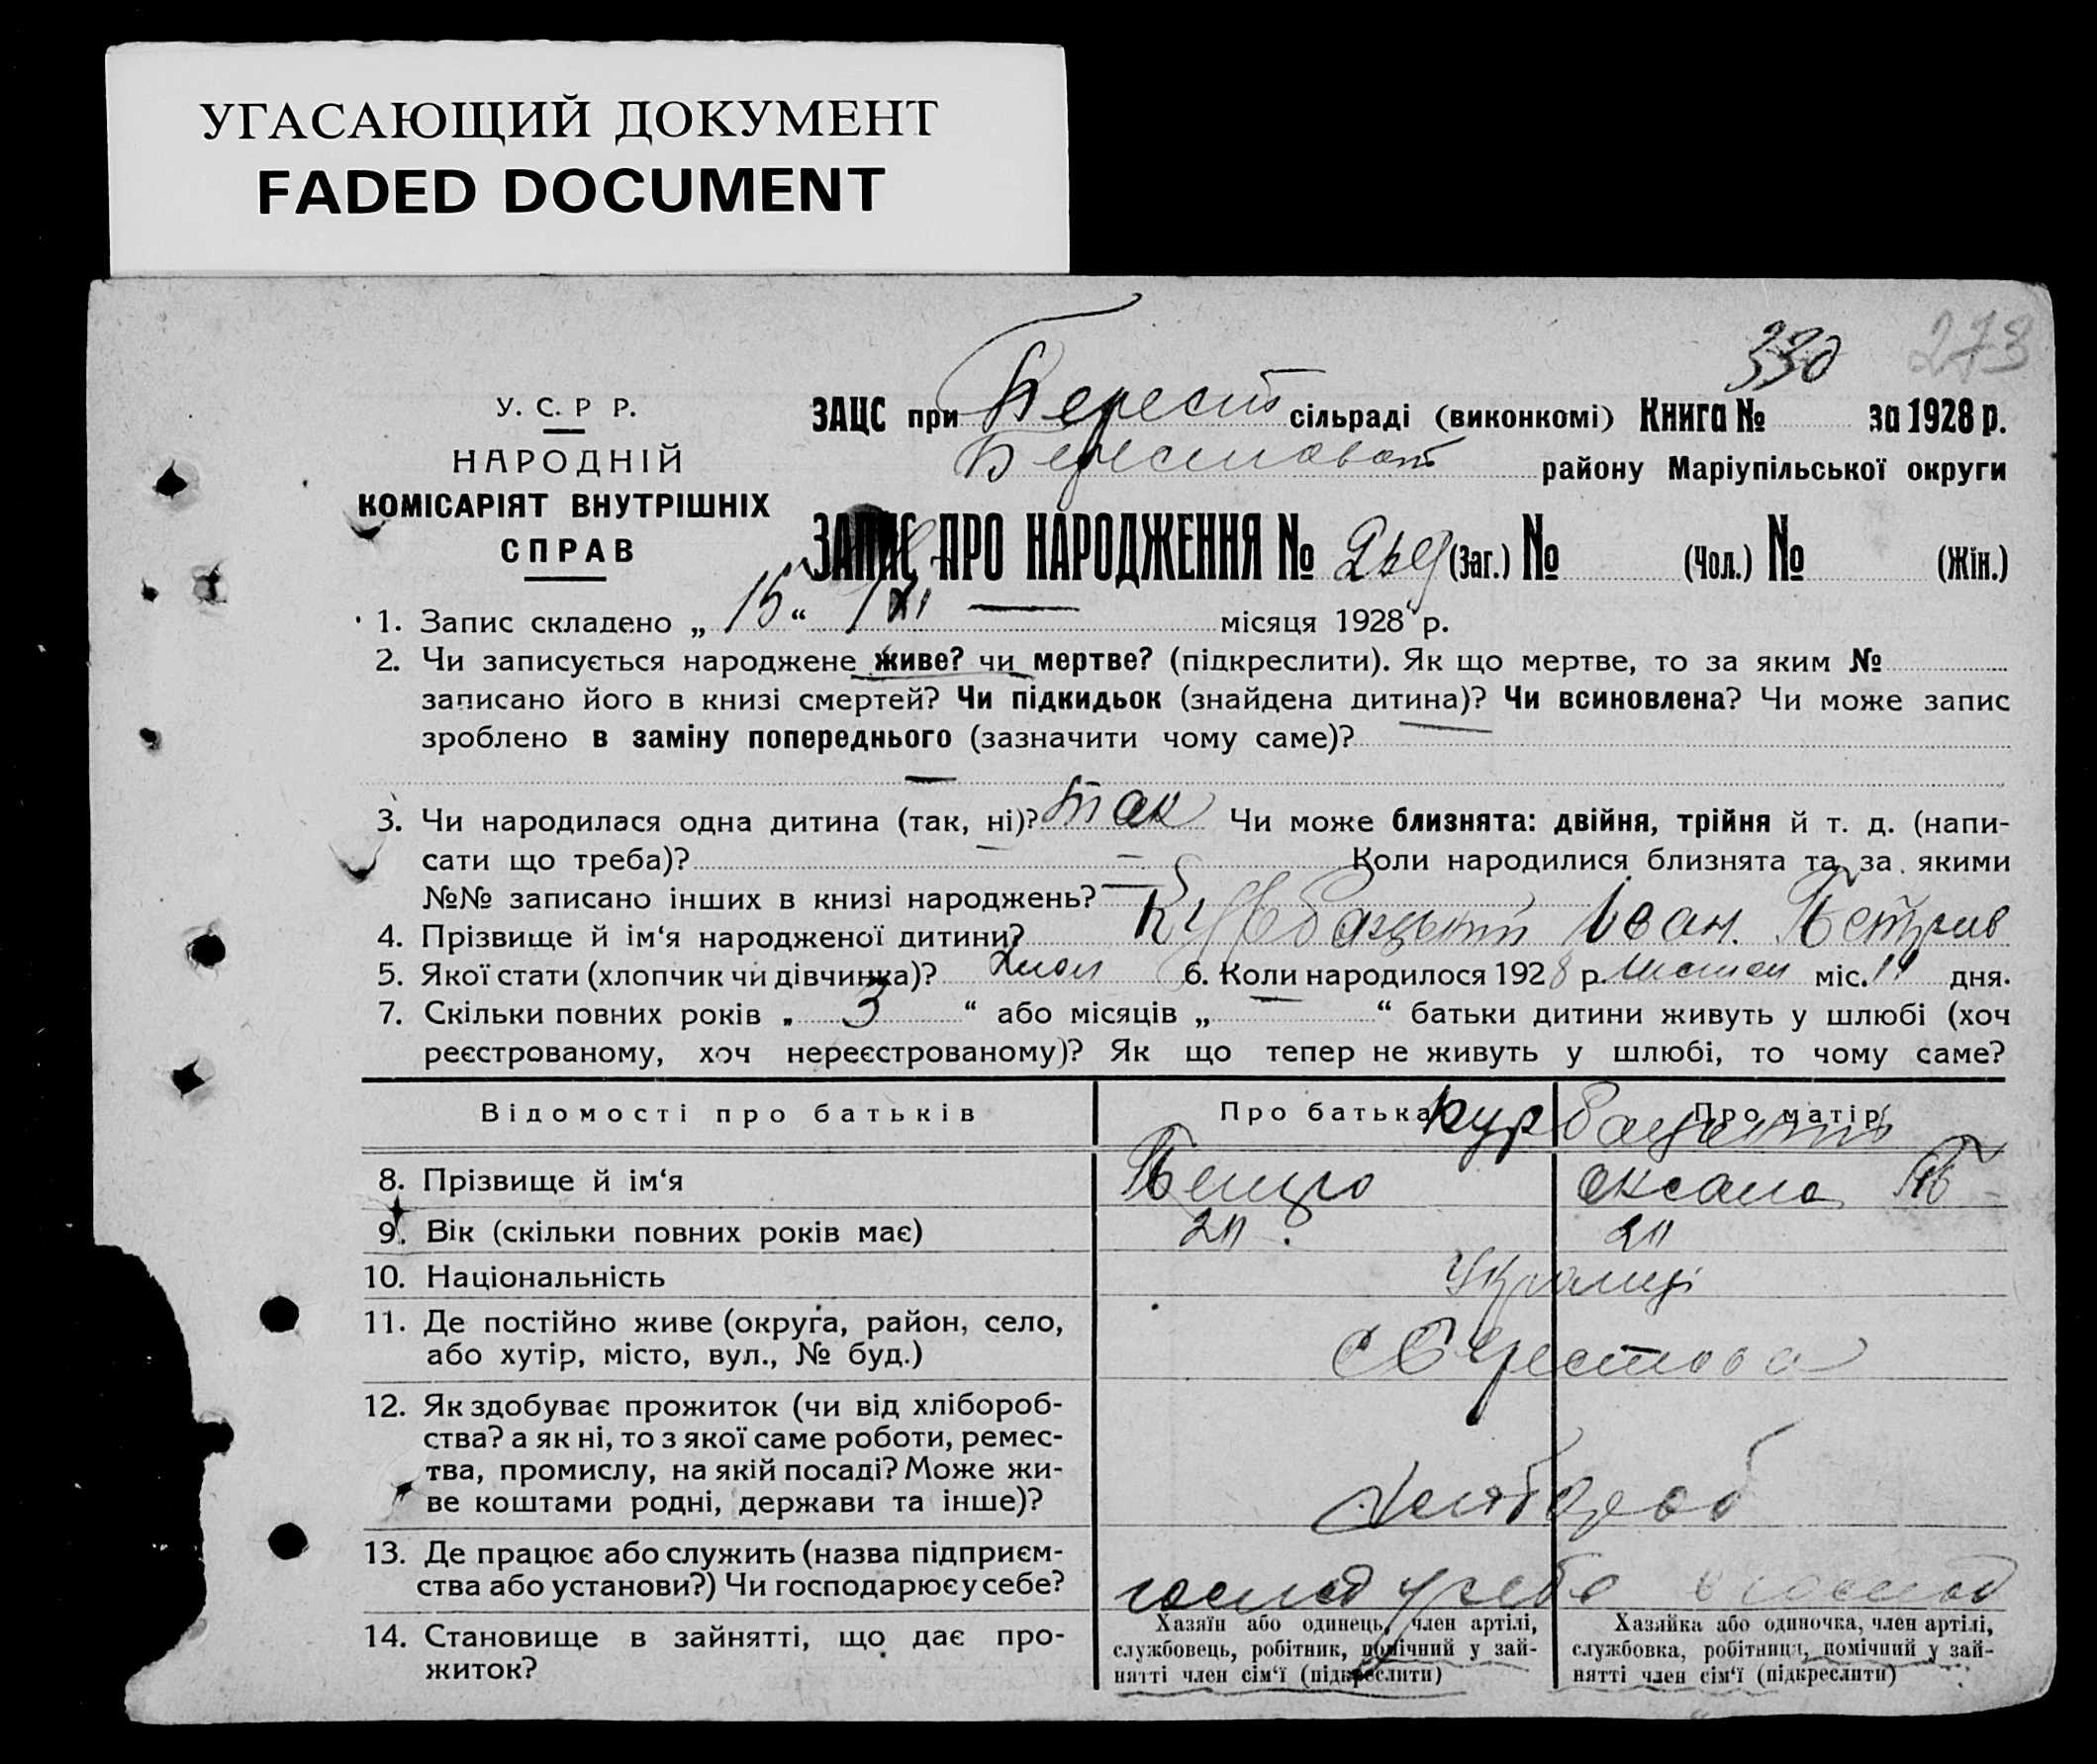 УГАСАЮЩИЙ ДОКУМЕНТ
FADED DOCUMENT
330 273
У. С. Р Р.
НАРОДНІЙ
КОМІСАРІЯТ ВНУТРІШНІХ
СПРАВ
ЗАЦС при Берест сільраді (виконкомі) Книга № за 1928 р.
Берестоват району Маріупільської округи
ЗАПИС ПРО НАРОДЖЕННЯ № (Заг.) № (Чол.) № (Жін.)
1. Запис складено „ 15 “ XI місяця 1928 р.
2. Чи записується народжене живе? чи мертве? (підкреслити). Як що мертве, то за яким №
записано його в книзі смертей? Чи підкидьок (знайдена дитина)? Чи всиновлена? Чи може запис
зроблено в заміну попереднього (зазначити чому саме)?
3. Чи народилася одна дитина (так, ні)? так Чи може близнята: двійня, трійня й т. д. (напи-
сати що треба)? Коли народилися близнята та за якими
№№ записано інших в книзі народжень?
4. Прізвище й ім‘я народженої дитини? Іван Петров
5. Якої стати (хлопчик чи дівчинка)? хлоп 6. Коли народилося 1928 р. листоп міс. 11 дня.
7. Скільки повних років „ 3 “ або місяців „ — “ батьки дитини живуть у шлюбі (хоч
реєстрованому, хоч нереєстрованому)? Як що тепер не живуть у шлюбі, то чому саме?
Відомості про батьків Про батька Про матір
8. Прізвище й ім‘я Петро Оксана
9. Вік (скільки повних років має)
10. Національність Українці
11. Де постійно живе (округа, район, село,
або хутір, місто, вул., № буд.) с Берестова
12. Як здобуває прожиток (чи від хлібороб-
ства? а як ні, то з якої саме роботи, ремес-
тва, промислу, на якій посаді? Може жи-
ве коштами родні, держави та інше)? Хлібороб
13. Де працює або служить (назва підприєм-
ства або установи?) Чи господарює у себе? господ у себе в господ
14. Становище в зайнятті, що дає про-
житок?
Хазяїн або одинець, член артілі,
службовець, робітник, помічний у зай-
нятті член сім‘ї (підкреслити)
Хазяйка або одиночка, член артілі,
службовка, робітниця, помічний у зай-
нятті член сім‘ї (підкреслити)